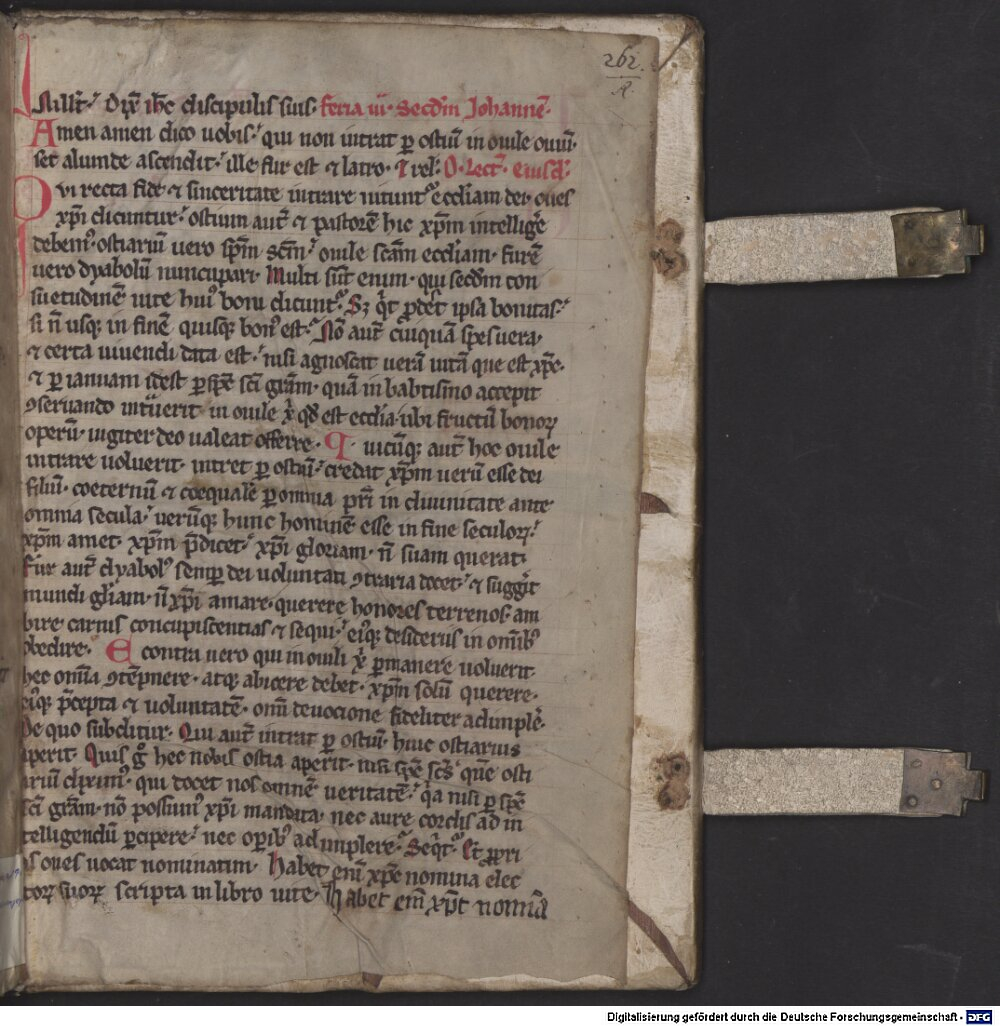 262.
A.
In ill't. Dix ihc discipulis suis. feria iii. Secdm Johannē.
Amen amen dico uobis. qui non intrat p ostiū in ouile ouiū.
set aliunde ascendit. ille fur est ⁊ latro. Et rel. O. Lect. eiusd.
Qvi recta fide ⁊ sinceritate intrare nitunt᷑ eccliam dei. oues
xp̄i dicuntur. ostium aut̄ ⁊ pastorē hic xp̄m intellige
debem᷒. ostiariū uero sp̄m sc̄m. ouile sc̄am eccliam. furē
uero dyabolū nuncupari. Multi sūt enim. qui secdm con
suetudinē uite hui᷒ boni dicunt᷑. Sꝫ qͥt p̄det ipsa bonitas.
si n̄ usqꝫ in finē quisqꝫ bon᷒ est. Nō aut̄ cuiquā spes uera.
⁊ certa uiuendi data est. nisi agnoscat uerā uitā que est xp̄c.
⁊ p ianuam idest p sp̄c sc̄i gr̄am. quā in babtismo accepit
ꝯseruando int̄uerit in ouile x̄ qd̄ est ecclia. ubi fructū bonoꝝ
operū. iugiter deo ualeat offerre. Q uicūqꝫ aut̄ hoc ouile
intrare uoluerit. intret p ostiū. credat xp̄m uerū esse dei
filiū. coeternū ⁊ coequalē p omnia pr̄i in diuinitate ante
omnia secula. uerūqꝫ hunc hominē esse in fine seculoꝝ.
xp̄m amet. xp̄m p̄dicet. xp̄i gloriam. n̄ suam querat.
Fur aut̄ dyabol᷒ semp dei uoluntati ꝯtraria docet. ⁊ suggīt
mundi gl̄iam. n̄ xp̄i amare. querere honores terrenos. am
bire carnis concupiscentias ⁊ sequi. ei᷒qꝫ desideriis in omīb᷒
obedire. E contra uero qui in ouili x̄ pmanere uoluerit
hec omīa ꝯtēpnere. atqꝫ abicere debet. xp̄m solū querere.
ei᷒qꝫ p̄cepta ⁊ uoluntatē. omī deuocione fideliter adimplē.
De quo subditur. Qui aut̄ intrat p ostiū. huic ostiarius
aperit. Quis gͦ hec nobis ostia aperit. nisi sp̄c sc̄s quē osti
ariū dixim᷒. qui docet nos omnē ueritatē. qͥa nisi p sp̄c
sc̄i gr̄am. nō possum᷒ xp̄i mandata. nec aure cordis ad in
telligendū pcipere. nec opib᷒ adimplere. Seqͥt᷑. Et ppri
as oues uocat nominatim. Habet enī xp̄c nomina elec
toꝝ suoꝝ scripta in libro uite. Habet enī xp̄c nomīa
Digitalisierung gefördert durch die Deutsche Forschungsgemeinschaft - DFG